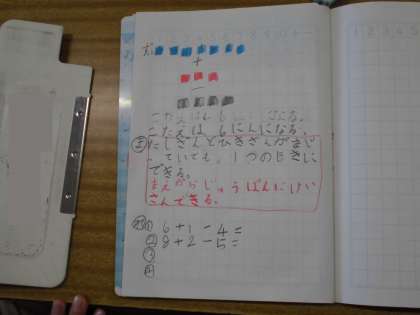 +
−
こたえは6にんになる。
たしざんとひきざんがまじ
っていても、1つのしきに
できる。
まえからじゅうばんにけい
さんできる。
① 6+1−4=
② 8+2−5=
③
④